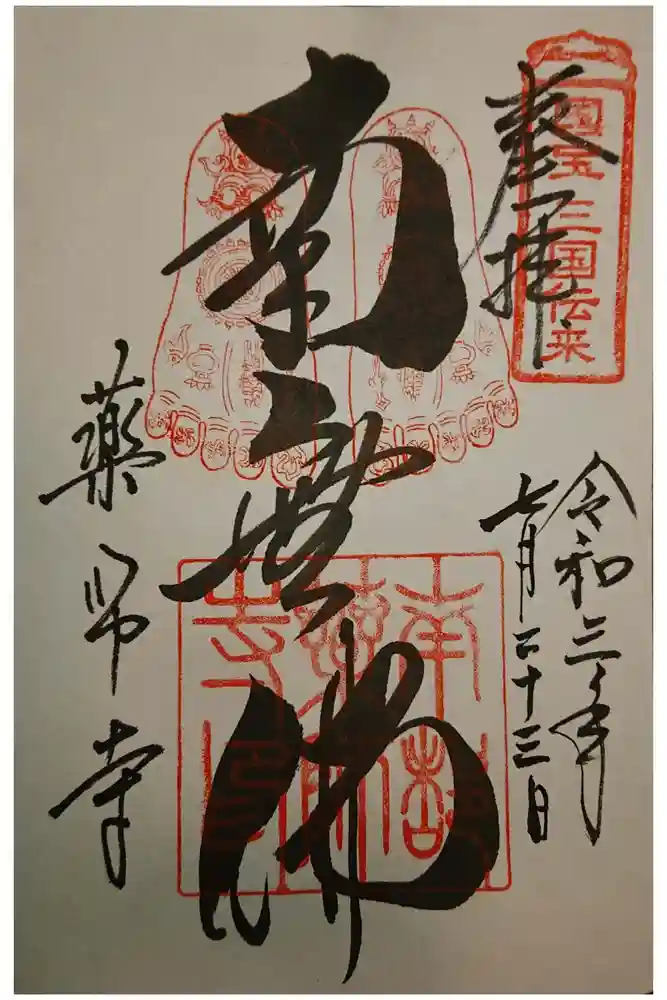 奉拝
国宝 三国伝来
令和三年
七月二十三日
南無佛
南都
薬師
寺印
薬師寺